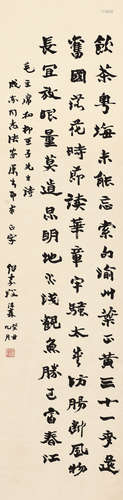 飲茶粵海未能忘索句渝州葉正黃三十一年還
舊國落花時節讀華章牢騷太盛防腸斷風物
長宜放眼量莫道昆明池水淺觀魚勝過富春江
毛主席和柳亞子先生詩
同志法家屬書即希正字
癸丑九月